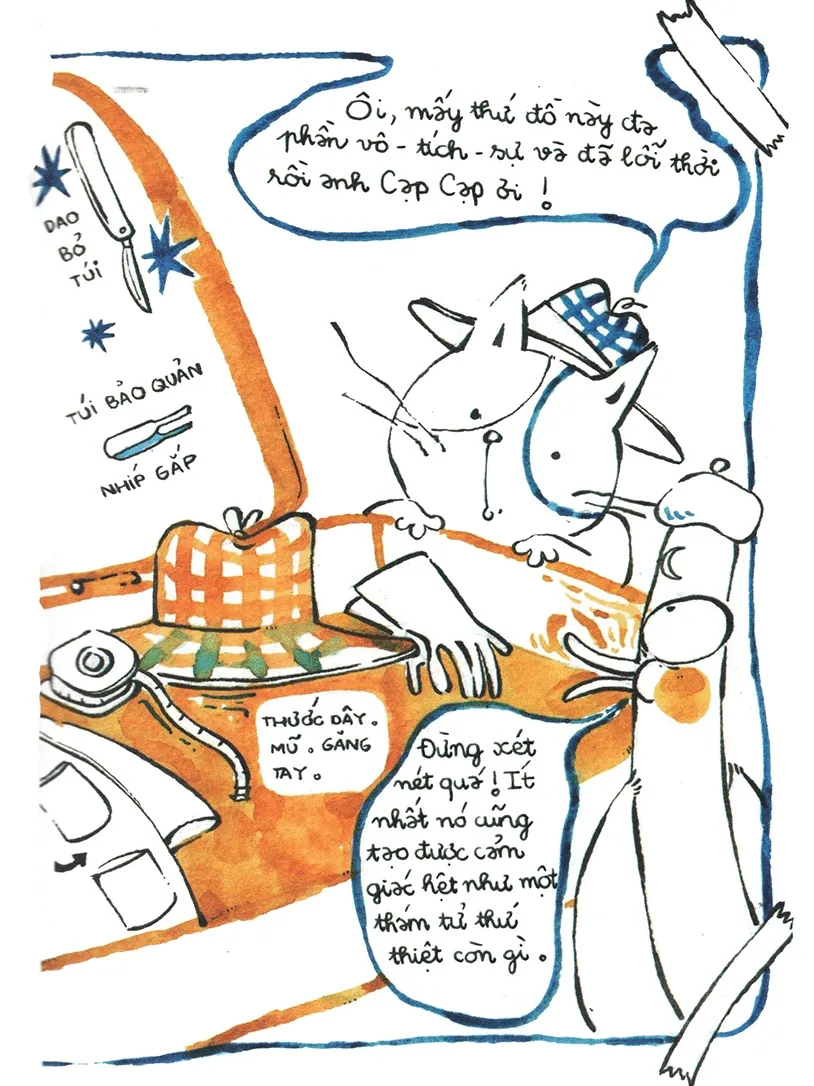 Ôi, mấy thứ đồ này đa
phần vô - tích - sự và đã lỗi thời
rồi anh Cạp Cạp ơi !
DAO
BỎ
TÚI
TÚI BẢO QUẢN
NHÍP GẮP
THƯỚC DÂY.
MŨ. GĂNG
TAY.
Đừng xét
nét quá ! Ít
nhất nó cũng
tạo được cảm
giác hệt như một
thám tử thứ
thiệt còn gì.